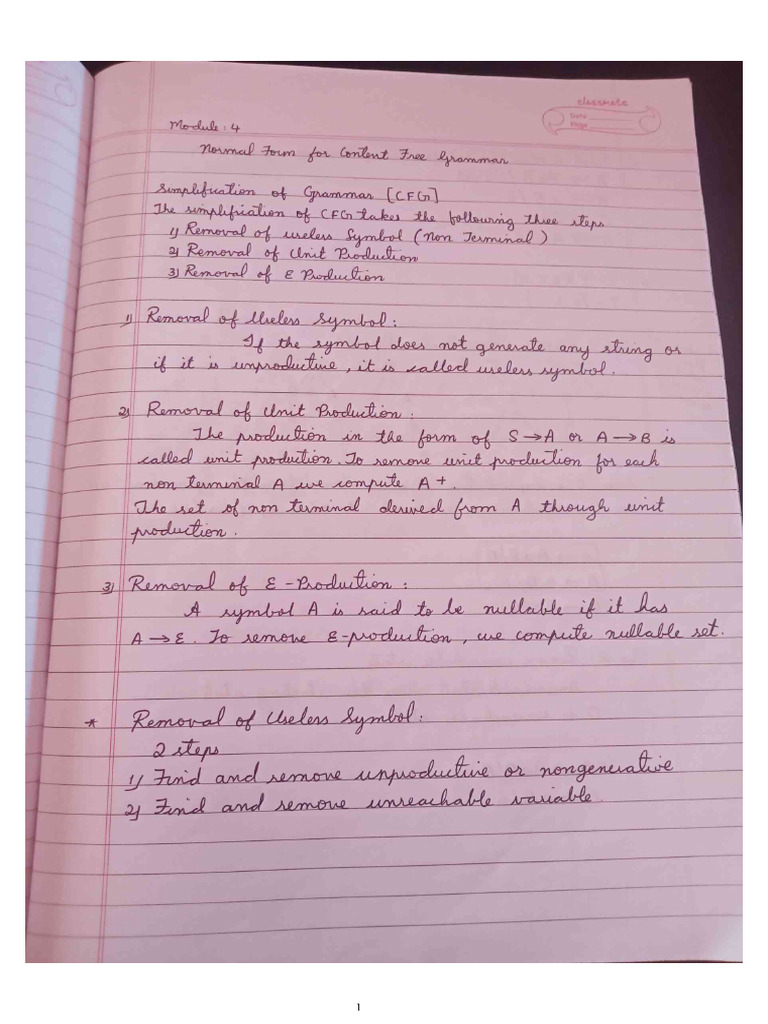 classmate
Date
Page
Module : 4
Normal Form for Content Free Grammar
Simplification of Grammar [CFG]
The simplification of CFG takes the following three steps
1) Removal of useless Symbol (Non Terminal)
2) Removal of Unit Production
3) Removal of ε Production
1) Removal of Useless Symbol :
If the symbol does not generate any string or
if it is unproductive, it is called useless symbol.
2) Removal of Unit Production :
The production in the form of S→A or A→B is
called unit production. To remove unit production for each
non terminal A we compute A+.
The set of non terminal derived from A through unit
production.
3) Removal of ε-Production :
A symbol A is said to be nullable if it has
A→ε. To remove ε-production, we compute nullable set.
* Removal of Useless Symbol :
2 steps
1) Find and remove unproductive or nongenerative
2) Find and remove unreachable variable.
1